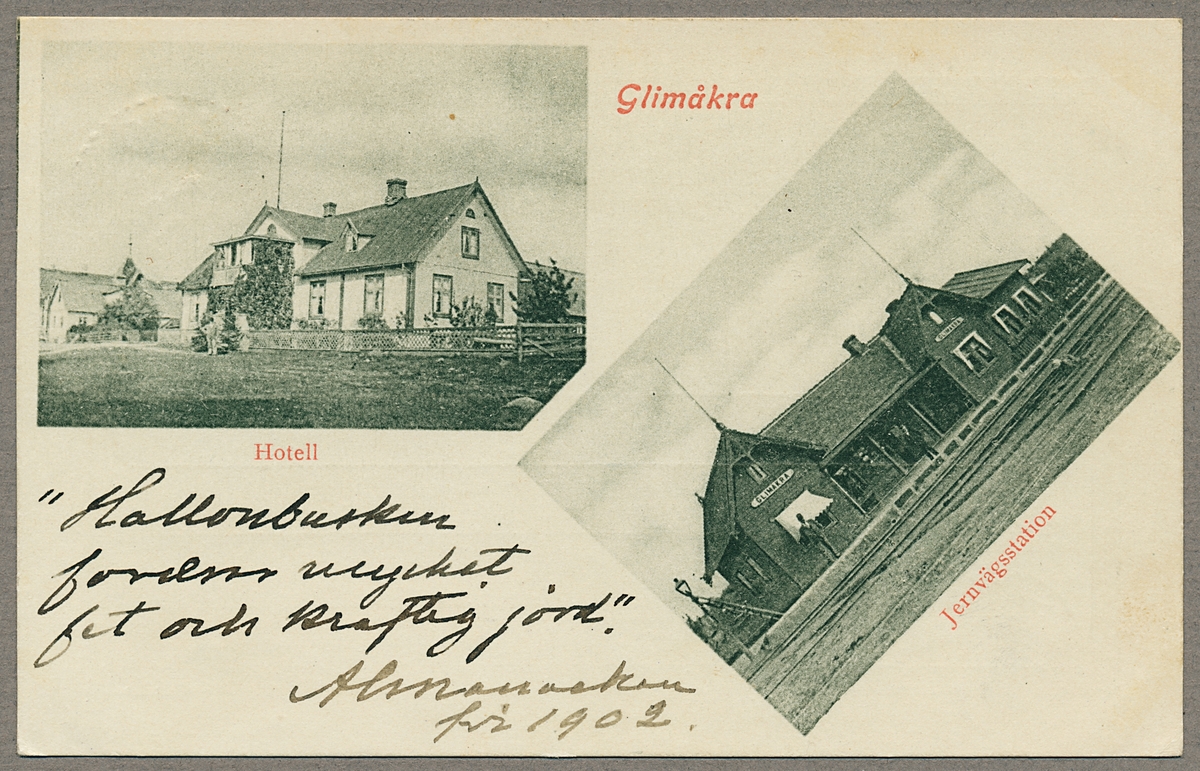 Glimåkra
Hotell
GLIMÅKRA
GLIMÅKRA
Jernvägsstation
"Hallonbusken
fordrar mycket
fet och kraftig jord".
Almanackan
för 1902.